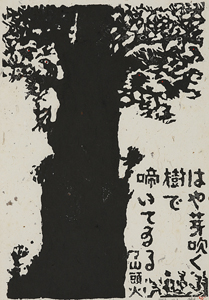 はや芽吹く
樹で
啼いてゐる
山頭火